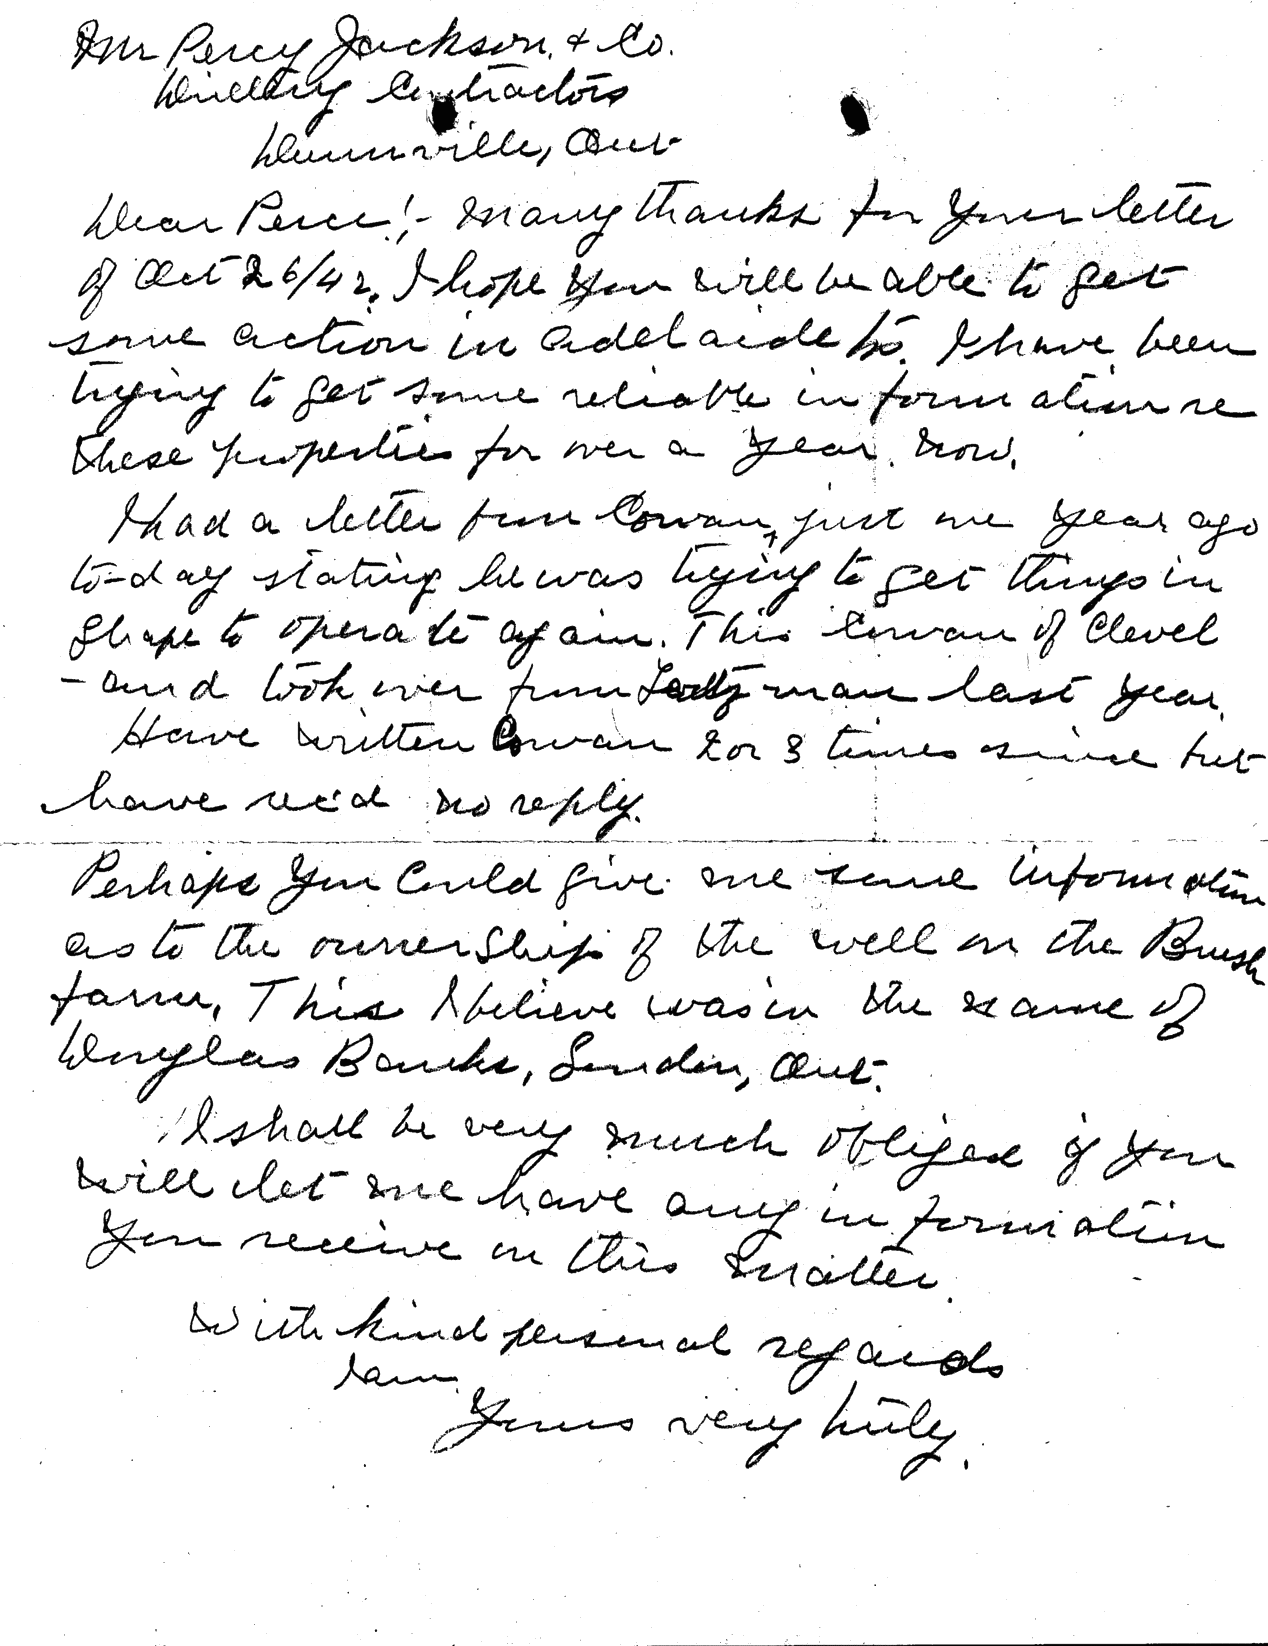 Mr Percy Jackson & Co.
Drilling Contractors
Dunnville, Ont
Dear Perce!- Many thanks for your letter
of Oct 26/42. I hope you will be able to get
some action in Adelaide Tp. I have been
trying to get some reliable information re
these properties for over a year now.
I had a letter from Cowan, just one year ago
to-day stating he was trying to get things in
shape to operate again. This Cowan of Clevel
-and took over from man last year.
Have written Cowan 2 or 3 times since but
have rec'd no reply.
Perhaps you could give me some information
as to the ownership of the well on the Brush
farm, This I believe was in the name of
Douglas Banks, London, Ont.
I shall be very much obliged if you
will let me have any information
you receive on this matter.
With kind personal regards
I am
Yours very truly.